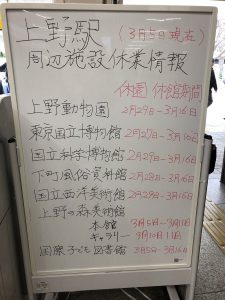 上野駅 (3月5日現在)
周辺施設休業情報
休園 休館期間
上野動物園 2月29日-3月16日
東京国立博物館 2月27日-3月16日
国立科学博物館 2月29日-3月16日
下町風俗資料館 2月28日-3月16日
国立西洋美術館 2月29日-3月16日
上野の森美術館
本館 3月5日-3月11日
ギャラリー 9月10日 11日
国際子ども図書館 3月5日-3月16日